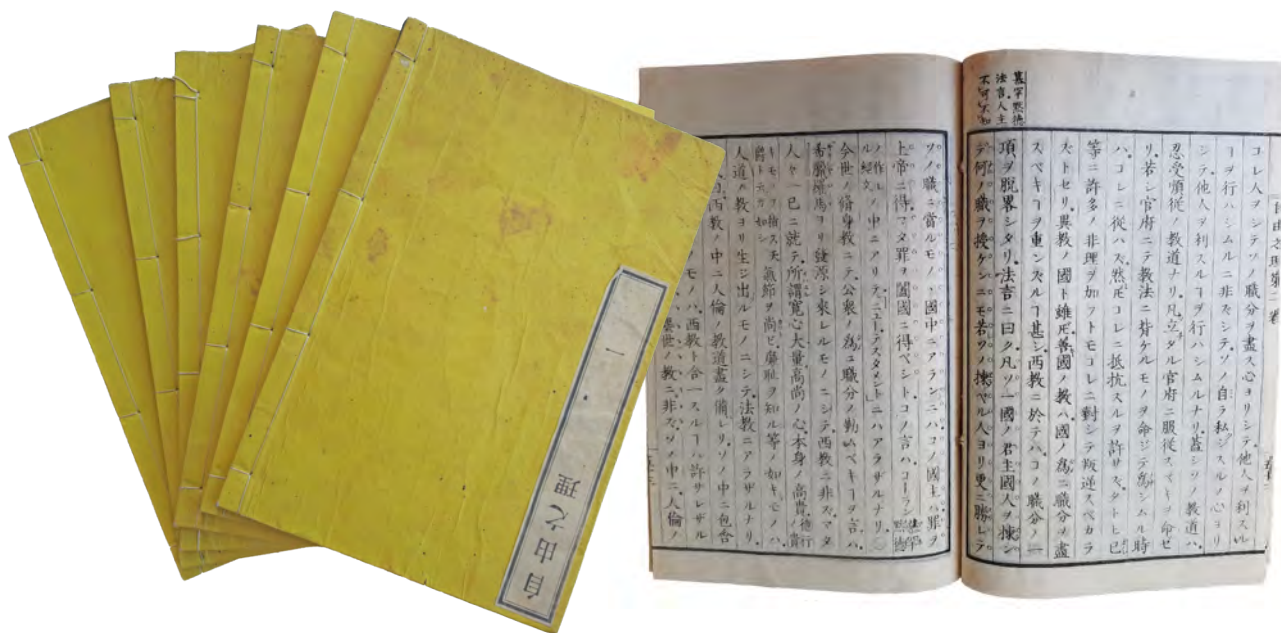 自由之理
一
自由之理第二卷
法言人主
コレ人ヲシテソノ職分ヲ盡ス心ヨリシテ他人ヲ利スル
ヿヲ行ハシムルニ非ズシテソノ自ラ私スルノ心ヨリ
シテ他人ヲ利スルヿヲ行ハシムルナリ蓋シソノ教道ハ
忍受順從ノ教道ナリ凡立タル官府ニ服從スベキヲ命ゼ
リ若シ官府ニテ教法ニ背ケルモノヲ命ジテ為シムル時
ハコレニ從ハズ然𪜈コレニ抵抗スルヲ許サズタトヒ己
等ニ許多ノ非理ヲ加フトモコレニ對シテ叛逆スベカラ
ズトセリ異教ノ國ト雖𪜈善國ノ教ハ國ノ為ニ職分ヲ盡
スベキヿヲ重ンズルヿ甚シ西教ニ於テハコノ職分ノ一
項ヲ脱畧シタリ法言ニ曰ク凡ソ一國ノ君主國人ヲ揀ン
デ何ノ職ヲ授ケンニモ若ソノ揀ベル人ヨリ更ニ勝レテ
ソノ職ニ當ルモノ國中ニアランニハコノ國主ハ罪ヲ
上帝ニ得マタ罪ヲ闔國ニ得ベシトコノ言ハコーラン
ノ作レル經文ノ中ニアリテニューテスタメントニハアラザルナリ
今世ノ脩身教ニテ公衆ノ為ニ職分ノ勤ムベキヿヲ言ハ
希臘羅馬ヨリ發源シ來レルモノニシテ西教ニ非ズマタ
人々一己ニ就テ所謂寛心大量高尚ノ心本身ノ高貴
氣節ヲ尚ビ廉耻ヲ知ル等ノ如キモノハ
人道ノ教ヨリ生ジ出ルモノニシテ法教ニアラザルナリ
西教ノ中ニ人倫ノ教道盡ク備レリソノ中ニ包含
モノハ西教ト合一スルヿハ許サレザル
教ニ非ズソノ中ニ人倫ノ